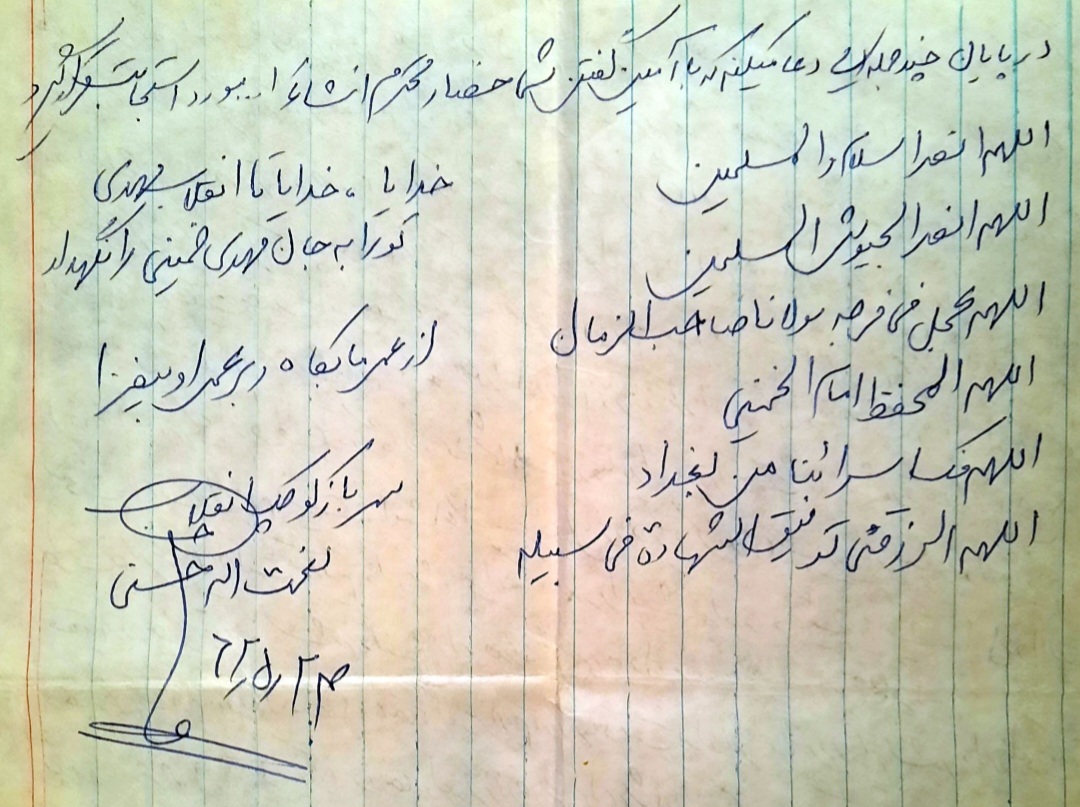 در پایان چند جمله‌ای دعا میکنم که با آمین گفتن شما حضار محترم انشاء ا... مورد استجابت قرار گیرد
اللهم انصر اسلام و المسلمین
اللهم انصر الجیوش المسلمین
اللهم عجل فی فرجه مولانا صاحب الزمان
اللهم الحفظ امام الخمینی
اللهم فک اسرائنا من بغداد
اللهم الرزقنی توفیق الشهادة فی سبیله
خدایا ، خدایا تا انقلاب مهدی
تو را به جان مهدی خمینی را نگهدار
از عمر ما بکاه و بر عمر او بیفزا
سرباز کوچک انقلاب
نعمت اله حسنی